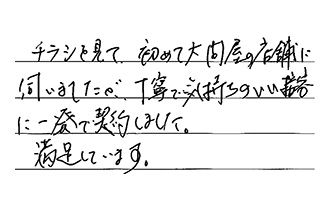 チラシを見て、初めて大問屋の店舗に
伺いましたが、丁寧で気持ちのいい接客
に一発で契約しました。
満足しています。